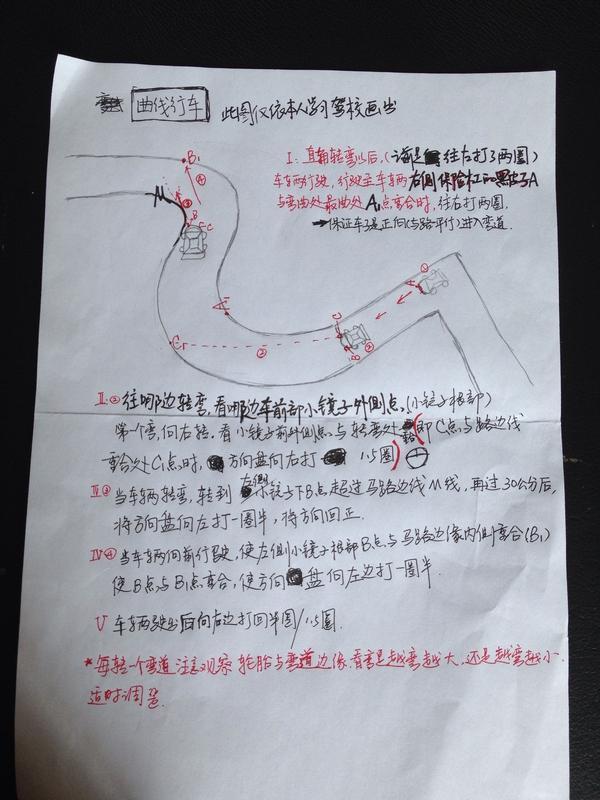 曲线行车
此图仅依本人学习驾校画出
I: 直角转弯以后,(方向是往左打了两圈)
车车两行驶,行驶至车辆右侧保险杠的黑点子A
与弯曲处最曲处A1点重合时,往左打两圈.
→保证车子是正向(与路平行)进入弯道.
B1
④
M
③
B
C
A1
C1
②
C
B
②
A
①
II:② 往哪边转弯,看哪边车前部小镜子外侧点。(小镜子根部)
第一个弯,向右转.看小镜子前外侧点与转弯处(即C点与路边线
重合处C1点时, 方向盘向右打 1.5圈)
III③ 当车辆转弯,转到左侧小镜子下B点超过马路边线M线,再过30公分后,
将方向盘向左打一圈半,将方向回正.
IV④ 当车辆向前行驶,使左侧小镜子根部B点与马路边缘内侧重合(B1)
使B点与B1点重合,使方向盘向左边打一圈半.
V 车辆驶出后向右边打回半圈/1.5圈.
*每转一个弯道注意观察 轮胎与弯道边缘.看看是越弯越大,还是越弯越小.
适时调整